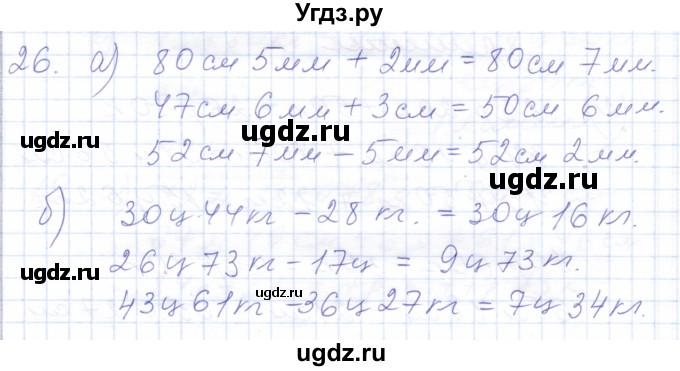 Угдз.ру
26. а) 80см 5мм + 2мм = 80см 7мм.
47см 6мм + 3см = 50см 6мм.
ugdz.ru ugdz.ru
52см 7мм – 5мм = 52см 2мм.
ugdz.ru
б) 30ц 44кг – 28 кг. = 30ц 16 кг.
26ц 73кг – 17ц = 9ц 73кг.
ugdz.ru ugdz.ru
43ц 61кг – 36ц 27кг = 7ц 34кг.
ugdz.ru
ugdz.ru